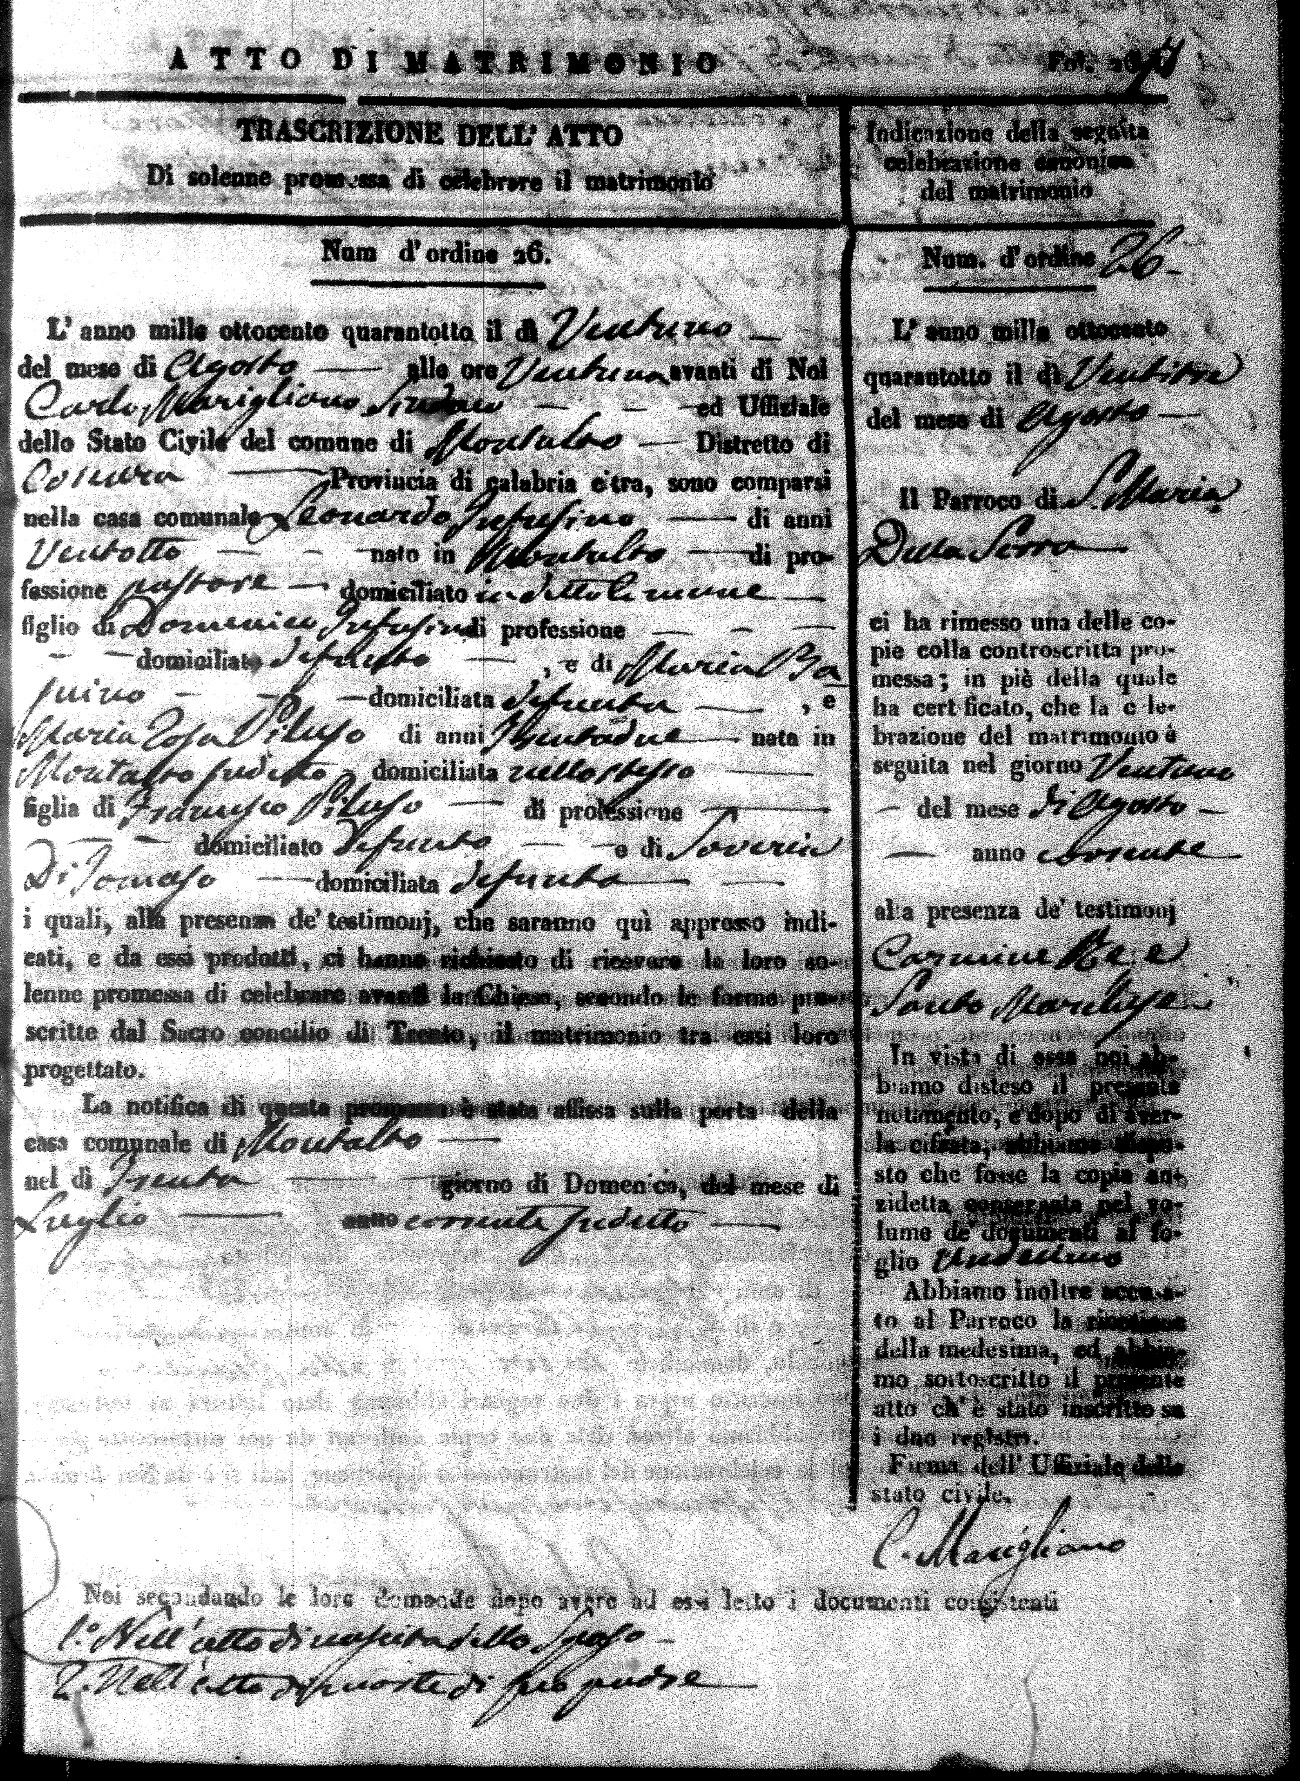 ATTO DI MATRIMONIO
Fol. 26
TRASCRIZIONE DELL' ATTO
Di solenne promessa di celebrare il matrimonio
Num d' ordine 26.
L' anno mille ottocento quarantotto il dì Ventuno —
del mese di Agosto — alle ore Ventuna avanti di Noi
Carlo Marigliano Sindaco — — — ed Uffiziale
dello Stato Civile del comune di Montalto — Distretto di
Cosenza — Provincia di calabria citra, sono comparsi
nella casa comunale Leonardo Infusino — di anni
Ventotto — — nato in Montalto — di pro-
fessione pastore — domiciliato in detto Comune —
figlio di Domenico Infusino di professione — — —
— — domiciliato defunto — , e di Maria
— — domiciliata defunta — , e
Maria Rosa Piluso di anni Trentadue — nata in
Montalto sudetto domiciliata nello stesso —
figlia di Francesco Piluso — di professione —
— — domiciliato Defunto — — e di Saveria
Di Tomaso — domiciliata defunta — —
i quali, alla presenza de' testimonj, che saranno quì appresso indi-
cati, e da essi prodotti, ci hanno richiesto di ricevere la loro so-
lenne promessa di celebrare avanti la Chiesa, secondo le forme pre-
scritte dal Sacro concilio di Trento, il matrimonio tra essi loro
progettato.
La notifica di questa promessa è stata affissa sulla porta della
casa comunale di Montalto —
nel dì Trenta — giorno di Domenica, del mese di
Luglio — anno corrente sudetto —
Noi secondando le loro domande dopo avere ad essi letto i documenti consistenti
1.° Nell' atto di nascita dello Sposo —
2. Nell' atto di morte di suo padre —
Indicazione della seguita
celebrazione canonica
del matrimonio
Num. d' ordine 26 -
L' anno mille ottocento
quarantotto il dì Ventitre
del mese di Agosto —
Il Parroco di S. Maria
Della Serra —
ci ha rimesso una delle co-
pie colla controscritta pro-
messa; in piè della quale
ha cert ficato, che la c le-
brazione del matrimonio è
seguita nel giorno Ventuno
— del mese di Agosto —
— anno corrente —
alla presenza de' testimonj
Carmine e
Santo
In vista di essa noi ab-
biamo disteso il presente
notamento, e dopo di aver-
la cifrata, abbiamo dispo-
sto che fosse la copia an-
zidetta conservata pel vo-
lume de' documenti al fo-
glio Undecimo
Abbiamo inoltre accusa-
to al Parroco la ricezione
della medesima, ed abbia-
mo sottoscritto il presente
atto ch' è stato inscritto su
i due registri.
Firma dell' Uffiziale dello
stato civile.
C. Marigliano